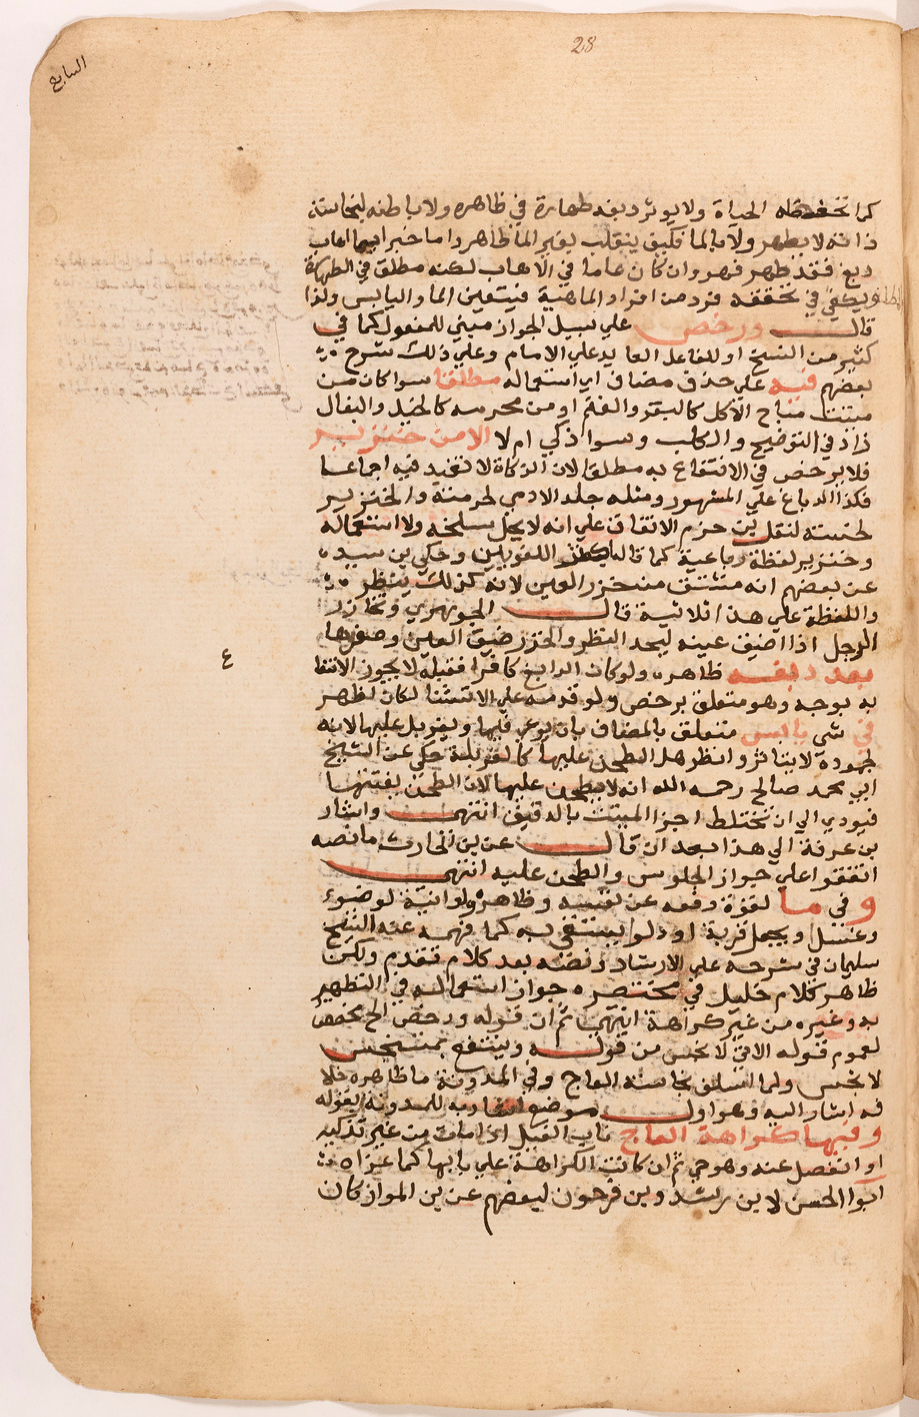 28
السابع
كما تحفظه الحياة ولا يوثر دبغه طهارة في ظاهره ولا باطنه لنجاسة
ذاته لا يطهر ولا بالما فكيف ينقلب لغير الما ظاهرا وما خبر ايما اهاب
دبغ فقد طهر فهو وان كان عاما في الاهاب لكنه مطلق في الطهارة
ويكفي في تحققه فرد من افراد الماهية فيتعين الما واليابس ولذا
قال ورخص علي سبيل الجواز مبني للمفعول كما في
كثير من النسخ او للفاعل العايد علي الامام وعلي ذلك شرح
بعضهم فيه علي حذف مضاف اي استعماله مطلقا سوا كان من
ميتت مباح الاكل كالبقر والغنم او من محرمه كالخيل والبغال
زاد في التوضيح والكلب وسوا ذكي ام لا الا من خنزير
فلا يرخص في الانتفاع به مطلقا لان الزكاة لا تفيد فيه اجماعا
فكذا الدباغ علي المشهور ومثله جلد الادمي لحرمته والخنزير
لنقل بن حزم الاتفاق علي انه لا يحل سلخه ولا استعماله
وخنزير لفظة رباعية كما قال اللغويين وحكي بن سيده
عن بعضهم انه مشتق من خزر العين لانه كذلك ينظر
واللفظة علي هذا ثلاثية قال الجوهري وتخازر
الرجل اذا اضيق عينه ليحد النظر والخزر ضيق العين وصغرها
بعد دبغه ظاهره ولو كان الدابغ كافرا فقبله لا يجوز الانتفا
به بوجه وهو متعلق برخص ولو قدمه علي الاستثنا لكان اظهر
في شي يابس متعلق بالمضاف بان يوعي فيها ويغربل عليها لانه
لجمودة لا يتناثر وانظر هل الطحن عليها كالغربلة حكي عن الشيخ
ابي محمد صالح رحمه الله انه لا يطحن عليها لان الطحن يفتتها
فيودي الي ان تختلط اجزا الميتت بالدقيق انتهي واشار
بن عرفة الي هذا بعد ان قال عن بن الحارث ما نصه
اتفقوا علي جواز الجلوس والطحن عليه انتهي
و في ما لقوة دفعه عن نفسه وظاهره ولو انية لوضوء
وغسل ويجعل قربة او دلوا يستقي به كما فهمه عنه الشيخ
سليمان في شرحه علي الارشاد ونصه بعد كلام تقدم ولكن
ظاهر كلام خليل في مختصره جواز استعماله في التطهير
به وغيره من غير كراهة انتهي ثم ان قوله ورخص الخ مخصص
لعموم قوله الاتي لا نجس من قوله وينتفع بمتنجس
لا نجس ولما اسلف نجاسة العاج وفي المدونة ما ظاهره خلا
فه اشار اليه وهو اول موضع للمدونة بقوله
وفيها كراهة العاج ناب الفيل اذا مات من غير تذكية
او انفصل عنه وهو حي ثم ان كانت الكراهة علي بابها كما عزاه
ابوا الحسن لابن رشد وبن فرحون لبعضهم عن بن المواز كان
ع